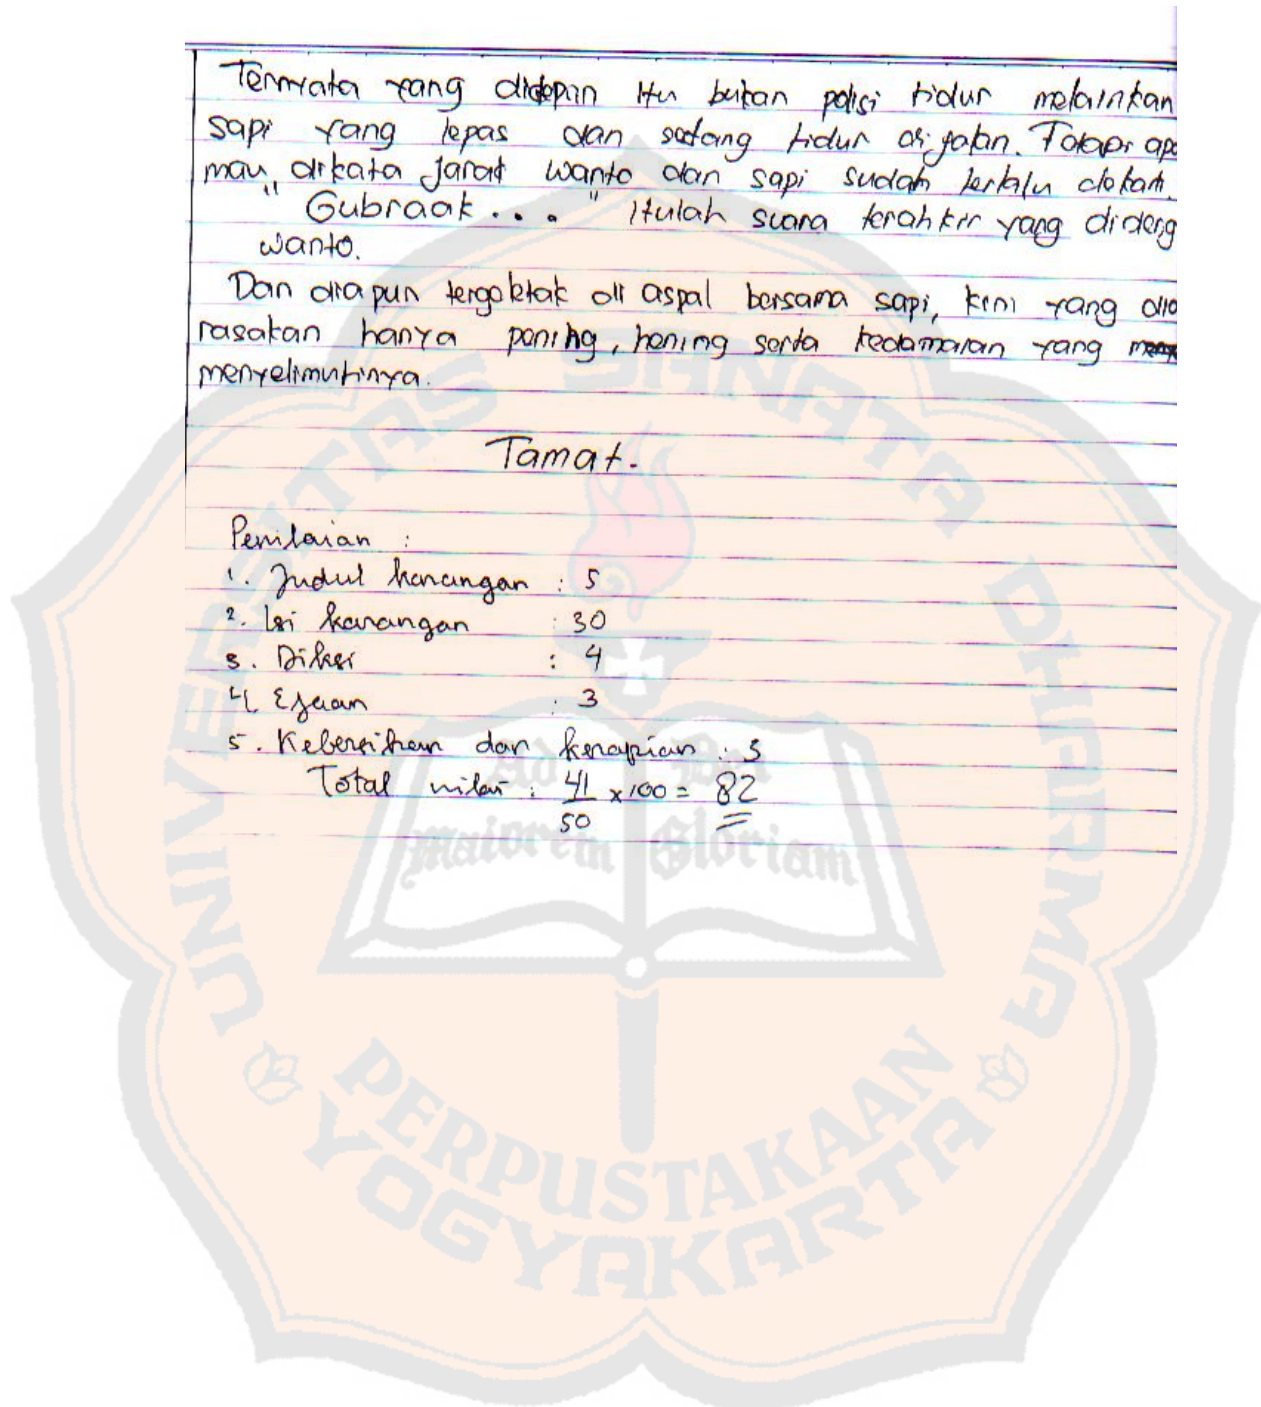 Ternyata yang didepan itu bukan polisi tidur melainkan
sapi yang lepas dan sedang tidur di jalan. Tetapi apa
mau dikata jarak wanto dan sapi sudah terlalu dekat.
" Gubraak . . . " itulah suara terahkir yang dideng
wanto.
Dan dia pun tergeletak di aspal bersama sapi, kini yang dia
rasakan hanya pening, hening serta kedamaian yang
menyelimutinya.
Tamat.
Penilaian :
1. Judul karangan : 5
2. Isi karangan : 30
3. Diksi : 4
4. Ejaan : 3
5. Kebersihan dan kerapian : 3
Total nilai : 41/50 x 100 = 82
UNIVERSITAS SANATA DHARMA
Ad Dei
Maiorem Gloriam
PERPUSTAKAAN
YOGYAKARTA